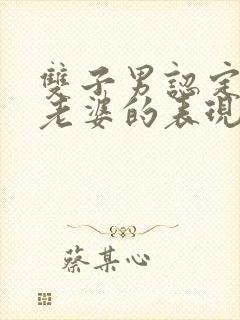 雙子男認定
老婆的表現
蔡某心